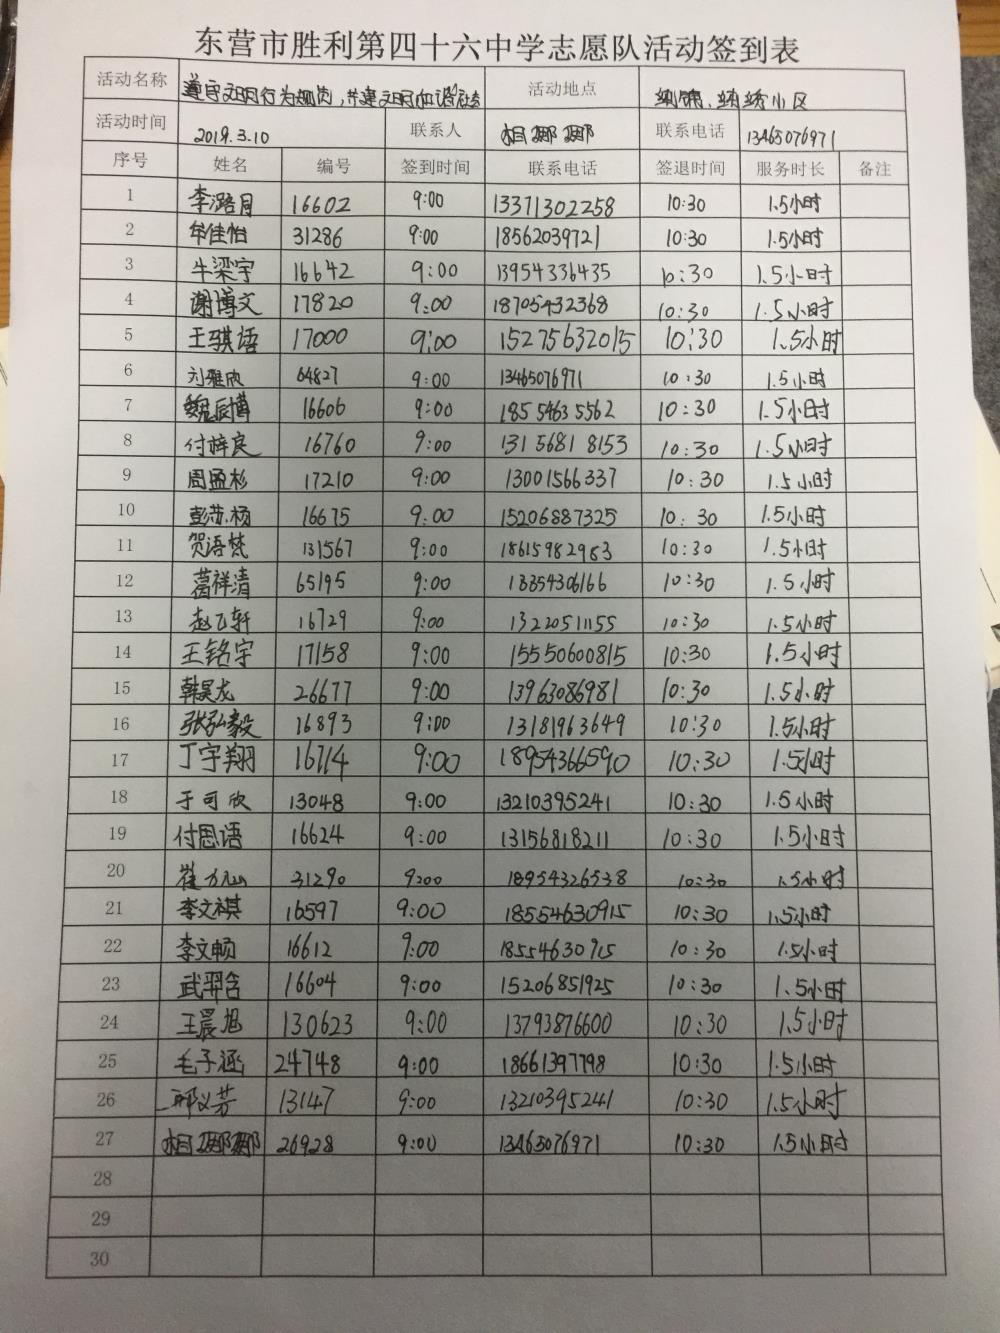 东营市胜利第四十六中学志愿队活动签到表
活动名称 遵守文明行为规范,共建文明和谐社会 活动地点 锦绣小区
活动时间 2019.3.10 联系人 相娜娜 联系电话 13465076971
序号 姓名 编号 签到时间 联系电话 签退时间 服务时长 备注
1 李潞月 16602 9:00 13371302258 10:30 1.5小时
2 牟佳怡 31286 9:00 18562039721 10:30 1.5小时
3 牛梁宇 16642 9:00 13954336435 10:30 1.5小时
4 谢博文 17820 9:00 18705432368 10:30 1.5小时
5 王骐语 17000 9:00 15275632015 10:30 1.5小时
6 刘雅欣 64827 9:00 13465076971 10:30 1.5小时
7 魏辰博 16606 9:00 18554635562 10:30 1.5小时
8 付梓良 16760 9:00 13156818153 10:30 1.5小时
9 周孟杉 17210 9:00 13001566337 10:30 1.5小时
10 彭苏杨 16675 9:00 15206887325 10:30 1.5小时
11 贺语梵 131567 9:00 18615982983 10:30 1.5小时
12 葛祥清 65195 9:00 13354306166 10:30 1.5小时
13 赵飞轩 16729 9:00 13220511155 10:30 1.5小时
14 王铭宇 17158 9:00 15550600815 10:30 1.5小时
15 韩昊龙 26677 9:00 13963086981 10:30 1.5小时
16 张弘毅 16893 9:00 13181963649 10:30 1.5小时
17 丁宇翔 16714 9:00 18954366590 10:30 1.5小时
18 于可欣 13048 9:00 13210395241 10:30 1.5小时
19 付思语 16624 9:00 13156818211 10:30 1.5小时
20 崔 31290 9:00 18954326538 10:30 1.5小时
21 李文祺 16597 9:00 18554630915 10:30 1.5小时
22 李文顿 16612 9:00 18554630915 10:30 1.5小时
23 武羿含 16604 9:00 15206851925 10:30 1.5小时
24 王晨旭 130623 9:00 13793876600 10:30 1.5小时
25 毛子涵 24748 9:00 18661397798 10:30 1.5小时
26 邢义芳 13147 9:00 13210395241 10:30 1.5小时
27 相娜娜 26928 9:00 13465076971 10:30 1.5小时
28
29
30